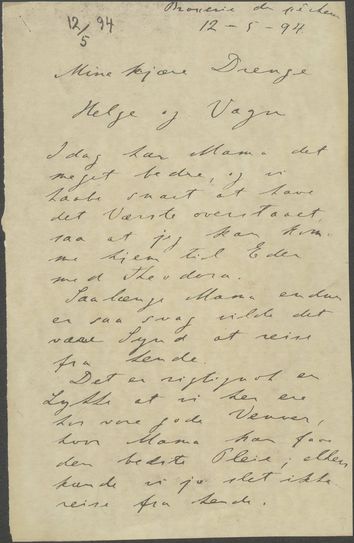 12/5 94
Brasserie du pêcheur
12-5-94
Mine kjære Drenge
Helge og Vagn
I dag har Mama det
meget bedre, og vi
haabe snart at have
det Værste overstaaet,
saa at jeg kan kom-
me hjem til Eder
med Theodora.
Saalænge Mama endnu
er saa svag vilde det
være Synd at reise
fra hende.
Det er rigtignok en
Lykke at vi her ere
hos vore gode Venner,
hvor Mama kan faae
den bedste Pleie; ellers
kunde vi jo slet ikke
reise fra hende.